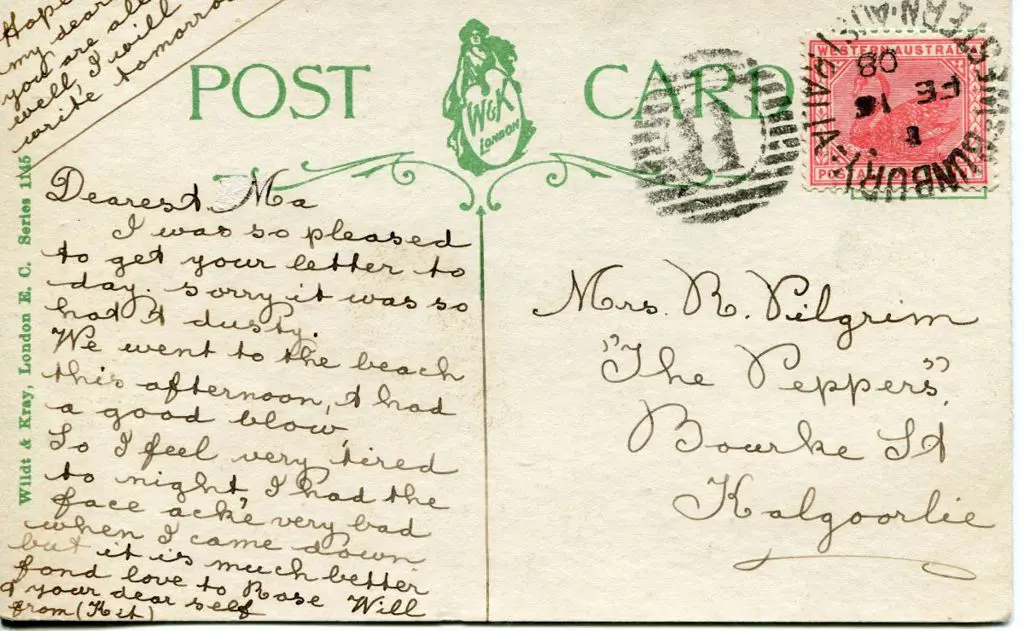 Hope
my dear
you are all
well, I will
write tomorro
POST CARD
W&K
LONDON
WESTERN AUSTRALIA
POSTA
BUNBURY
WESTERN-AUSTRALIA
FE
08
Wildt & Kray, London E. C. Series 1145
Dearest Ma
I was so pleased
to get your letter to
day. sorry it was so
hot & dusty.
We went to the beach
this afternoon, & had
a good blow,
So I feel very tired
to night, I had the
face ack'e very bad
when I came down
but it is much better
fond love to Rose Will
& your dear self
from (Kit)
Mrs. R. Pilgrim
"The Peppers",
Bourke St
Kalgoorlie